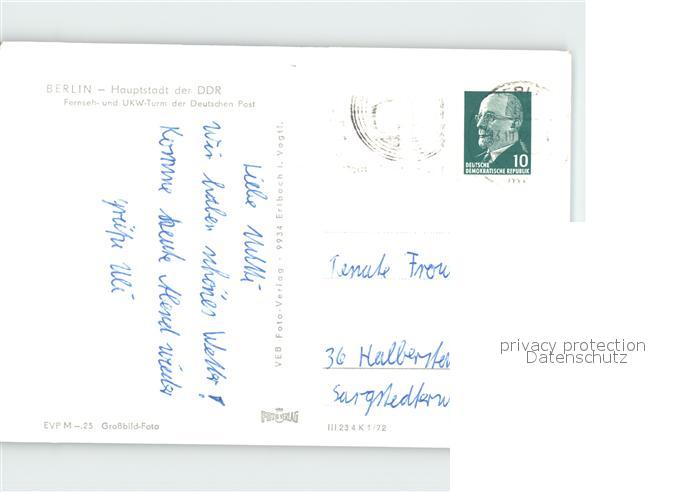 BERLIN – Hauptstadt der DDR
Fernseh- und UKW-Turm der Deutschen Post
Liebe Mutti
Wir haben schönes Wetter!
Komme heute Abend wieder
grüße Uli
VEB Foto-Verlag · 9934 Erlbach i. Vogtl.
10
DEUTSCHE
DEMOKRATISCHE REPUBLIK
Renate
36 Halberste
Sargstedterw
EVP M –.25 Großbild-Foto
FOTO VERLAG
III 23 4 K 1/72
privacy protection
Datenschutz